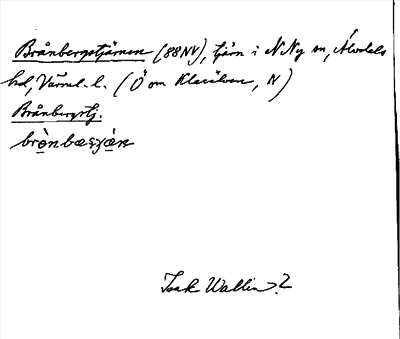 Brånbergstjärnen (88NV), tjärn i N Ny sn, Älvdals
hd, Värml. l. (Ö om Klarälven, N)
Brånbergstj.
Isak Wallin 2